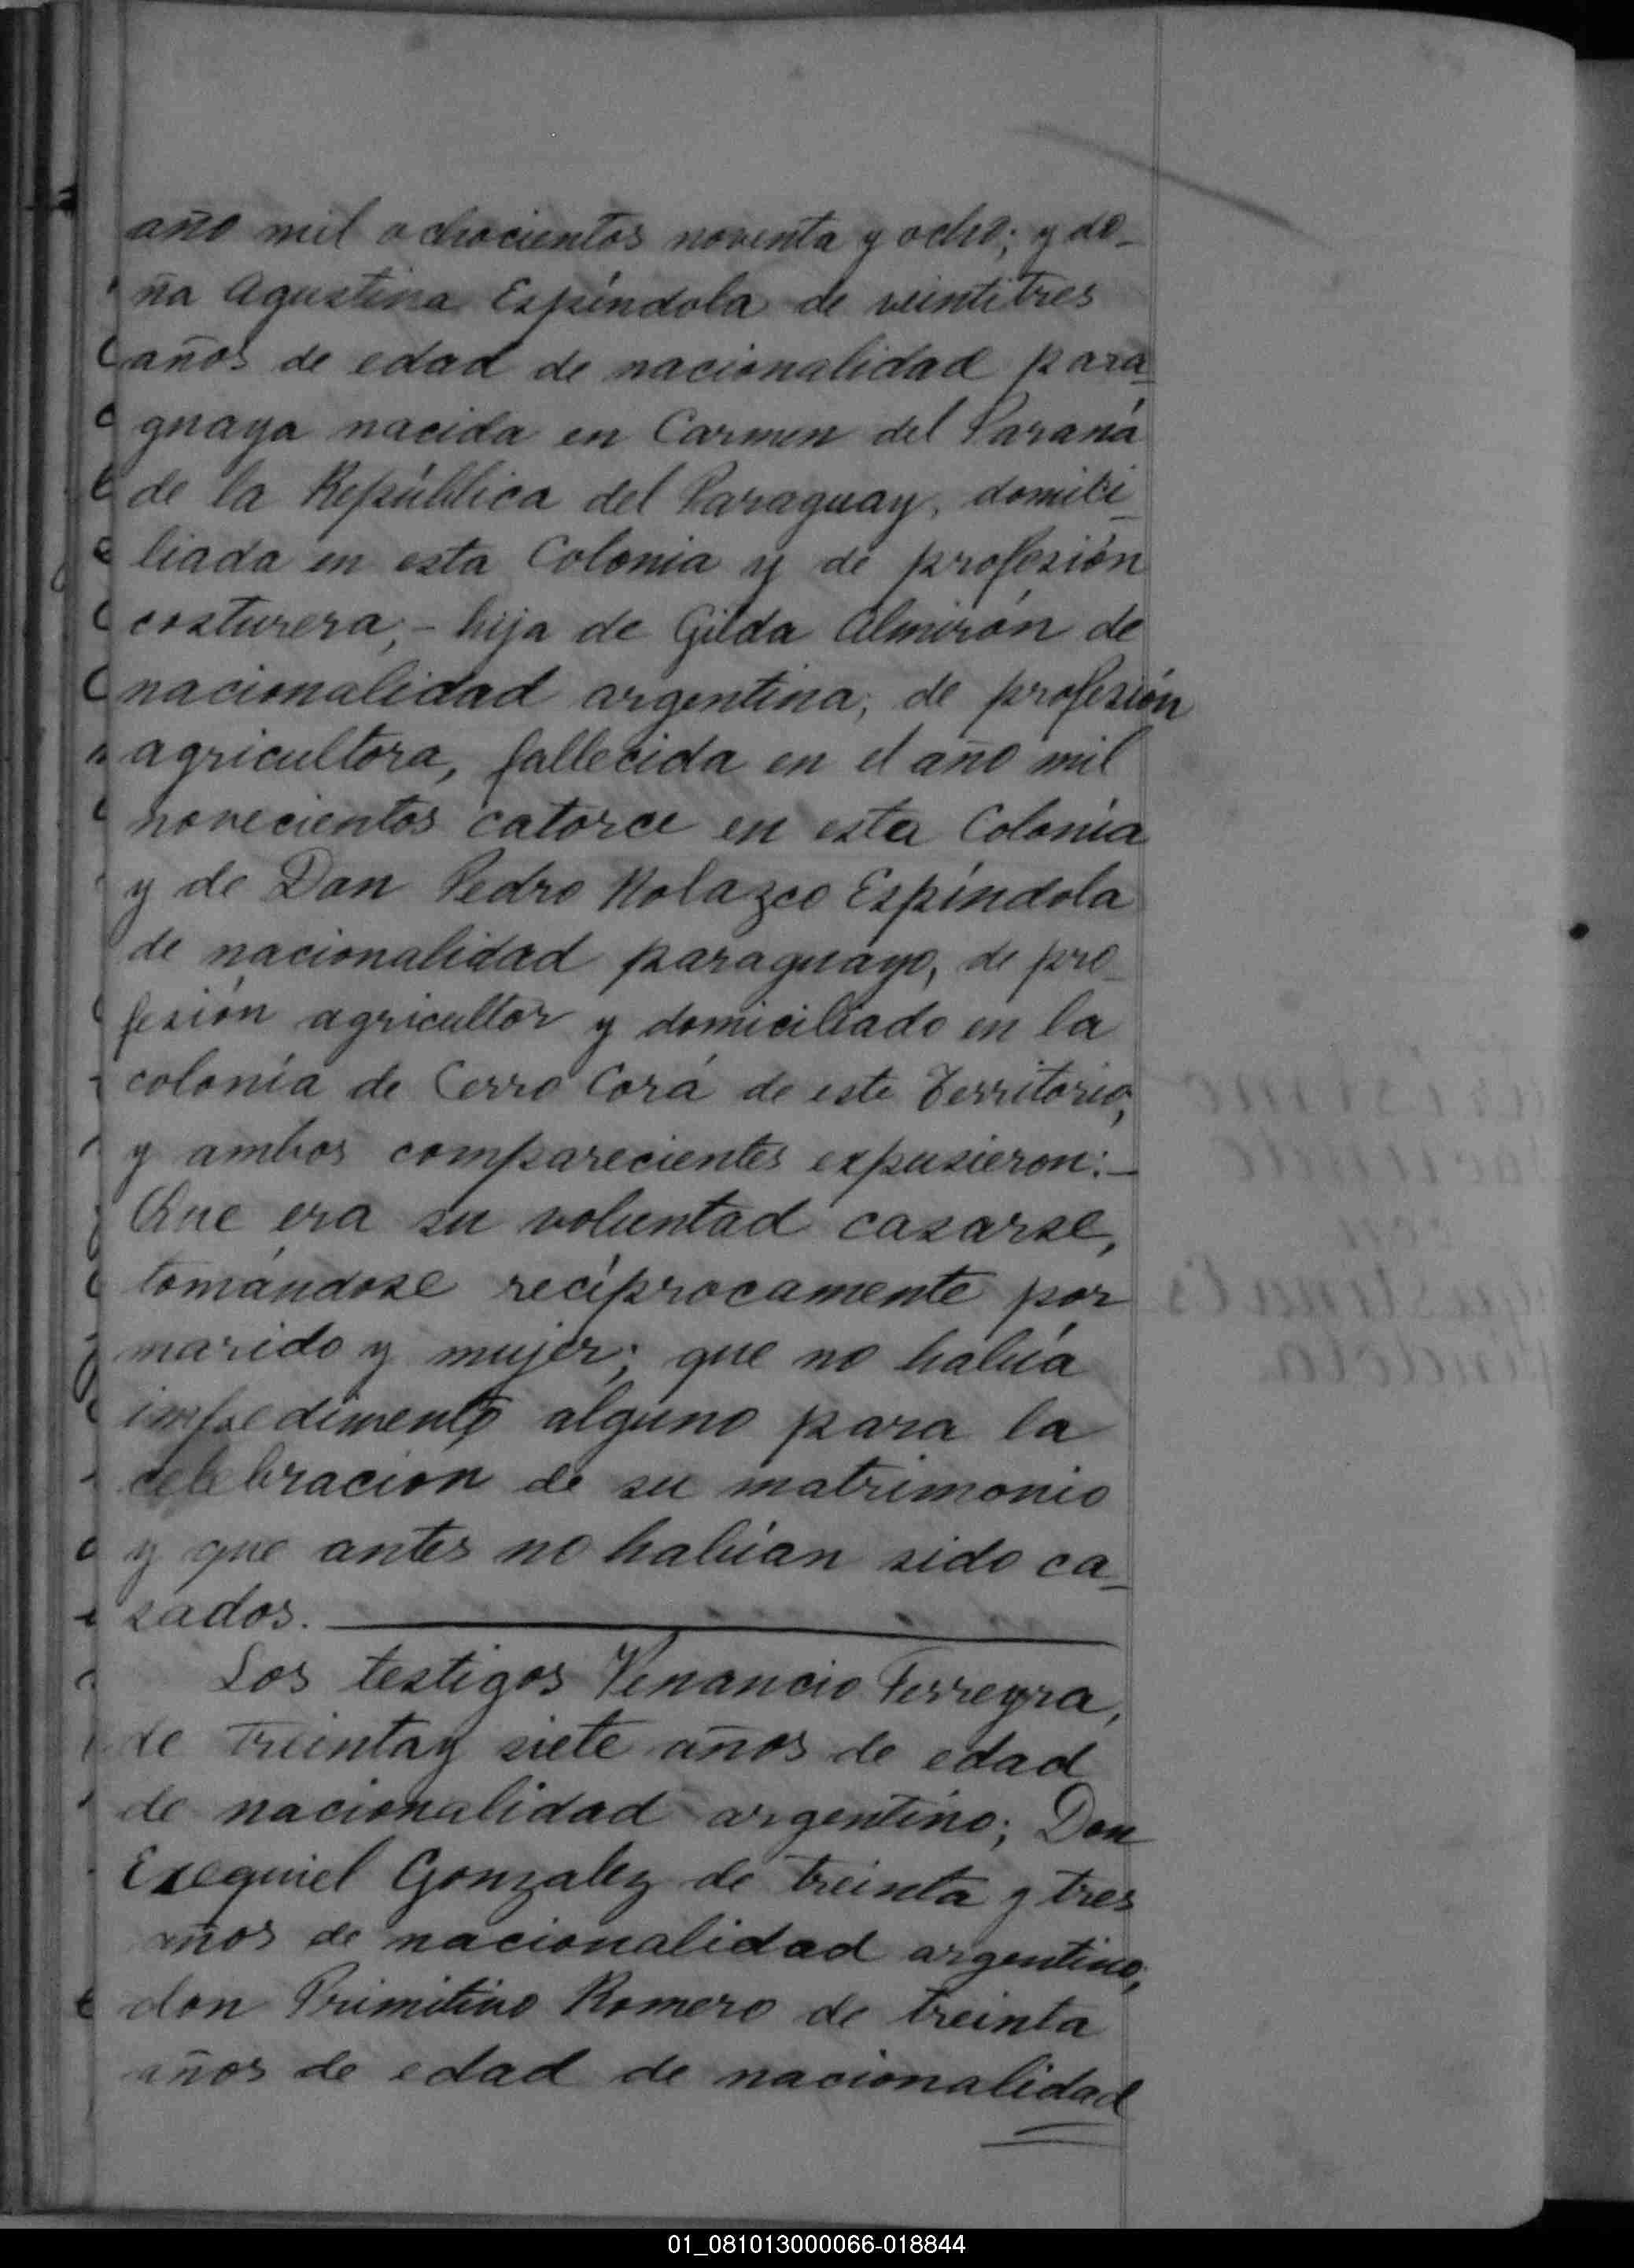 año mil ochocientos noventa y ocho; y do-
ña Agustina Espíndola de veintitres
años de edad de nacionalidad para
guaya nacida en Carmen del Paraná
de la República del Paraguay, domici
liada en esta Colonia y de profesión
costurera,- hija de Gilda Almirón de
nacionalidad argentina, de profesión
agricultora, fallecida en el año mil
novecientos catorce en esta Colonia
y de Don Pedro Nolazco Espíndola
de nacionalidad paraguayo, de pro
fesión agricultor y domiciliado en la
colonia de Cerro Corá de este Territorio,
y ambos comparecientes expusieron:-
Que era su voluntad casarse,
tomándose recíprocamente por
marido y mujer; que no había
impedimento alguno para la
celebracion de su matrimonio
y que antes no habían sido ca-
sados.
Los testigos Venancio Ferreyra,
de treinta y siete años de edad
de nacionalidad argentino; Don
Exequiel Gonzalez de treinta y tres
años de nacionalidad argentino,
don Primitivo Romero de treinta
años de edad de nacionalidad
01_081013000066-018844